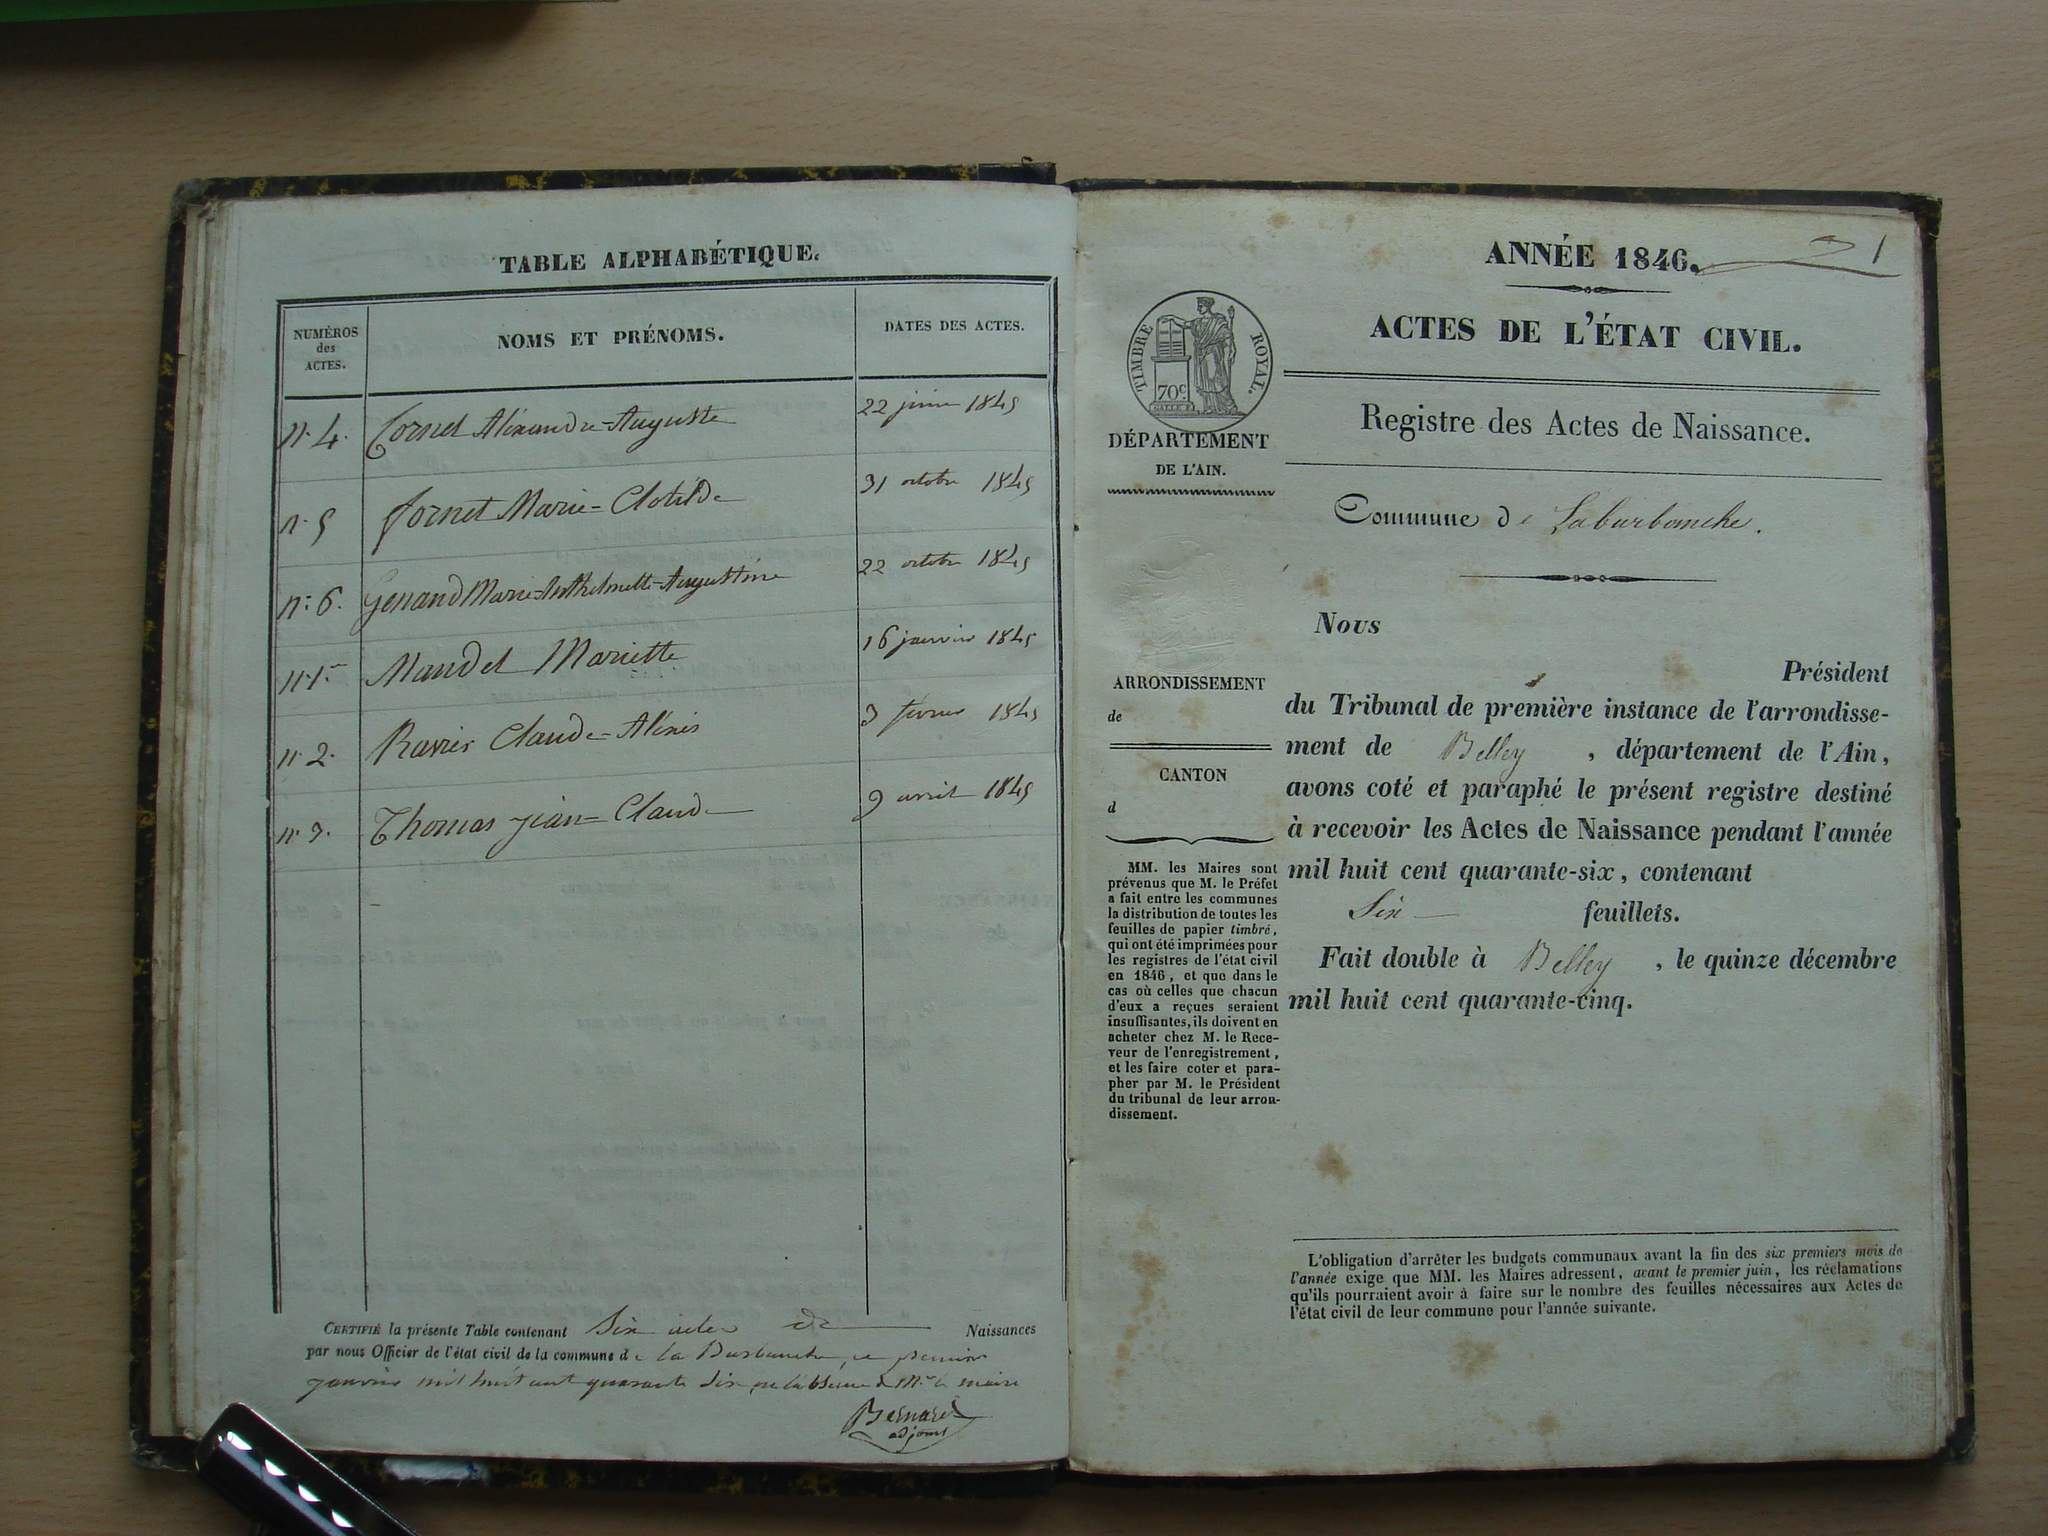 TABLE ALPHABÉTIQUE.
NUMÉROS des ACTES. NOMS ET PRÉNOMS. DATES DES ACTES.
n.° 4. Cornet Aléxandre-Auguste 22 juin 1845
n.° 5 fornet Marie-Clotilde 31 octobre 1845
n.° 6. Genand Marie-Anthelmette-Augustine 22 octobre 1845
n.° 1er Mandet Mariette 16 janvier 1845
n.° 2. Ravier Claude-Aléxis 3 février 1845
n.° 3. Thomas jean-Claude 9 avril 1845
CERTIFIÉ la présente Table contenant Six actes de Naissances
par nous Officier de l'état civil de la commune de la Burbanche, ce premier
janvier mil huit cent quarante Six, en l'absence de Mr. le maire
Bernard
adjoint
ANNÉE 1846. 1
ACTES DE L'ÉTAT CIVIL.
Registre des Actes de Naissance.
Commune de Laburbanche.
TIMBRE ROYAL.
70c
DÉPARTEMENT
DE L'AIN.
ARRONDISSEMENT
de
CANTON
d
MM. les Maires sont
prévenus que M. le Préfet
a fait entre les communes
la distribution de toutes les
feuilles de papier timbré,
qui ont été imprimées pour
les registres de l'état civil
en 1846, et que dans le
cas où celles que chacun
d'eux a reçues seraient
insuffisantes, ils doivent en
acheter chez M. le Rece-
veur de l'enregistrement,
et les faire coter et para-
pher par M. le Président
du tribunal de leur arron-
dissement.
Nous
Président
du Tribunal de première instance de l'arrondisse-
ment de Belley, département de l'Ain,
avons coté et paraphé le présent registre destiné
à recevoir les Actes de Naissance pendant l'année
mil huit cent quarante-six, contenant
Six feuillets.
Fait double à Belley, le quinze décembre
mil huit cent quarante-cinq.
L'obligation d'arrêter les budgets communaux avant la fin des six premiers mois de
l'année exige que MM. les Maires adressent, avant le premier juin, les réclamations
qu'ils pourraient avoir à faire sur le nombre des feuilles nécessaires aux Actes de
l'état civil de leur commune pour l'année suivante.